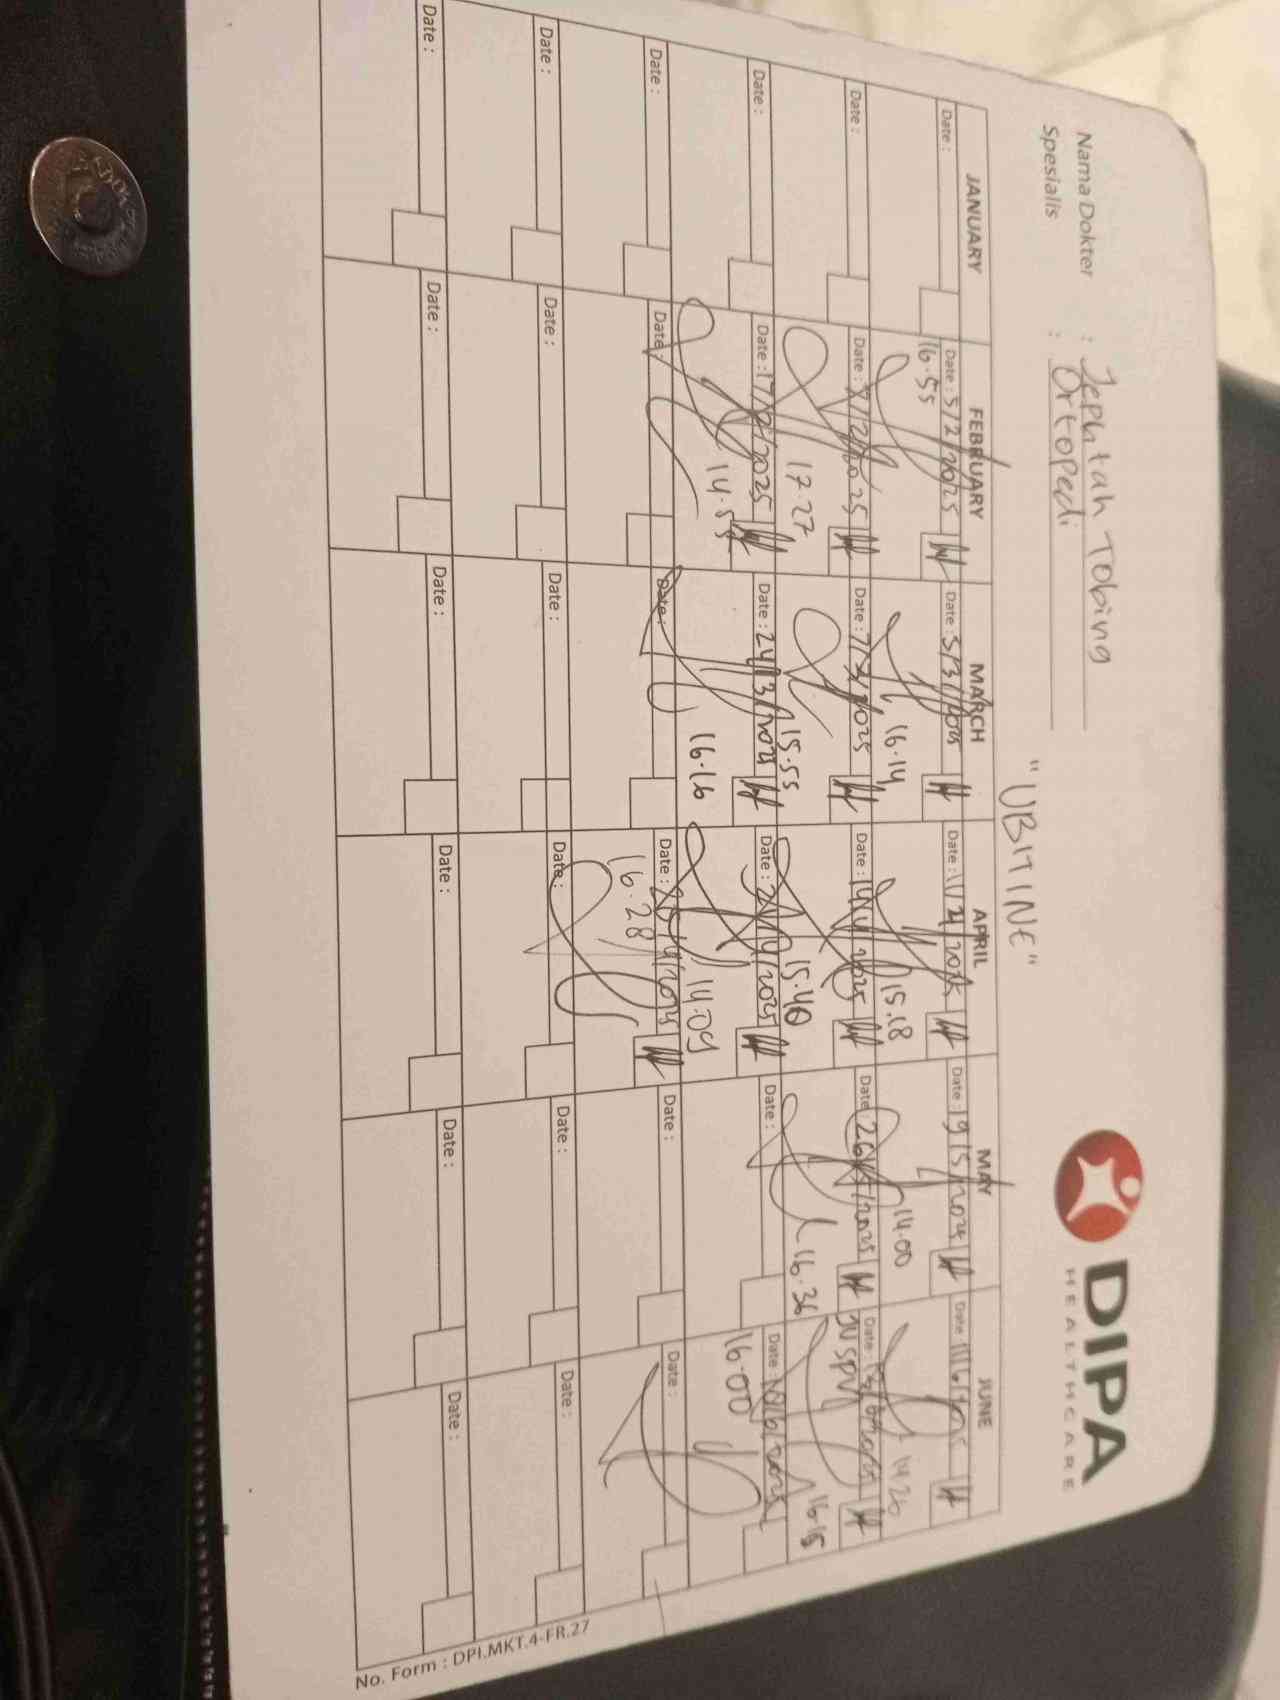 DIPA
HEALTHCARE
Nama Dokter : Jephtah Tobing
Spesialis : Ortopedi
"UBITINE"
JANUARY FEBRUARY MARCH APRIL MAY JUNE
Date : Date : 5/2/2025 Date : 5/3/2025 Date : 11/4/2025 Date : 19/5/2025 Date : 11/6/2025
16.55 16.14 15.18 14.00 14.26
Date : Date : 7/2/2025 Date : 7/3/2025 Date : 14/4/2025 Date : 26/5/2025 Date :
17.27 15.55 15.40 16.36 JVSPV 16.15
Date : Date : 17/2/2025 Date : 24/3/2025 Date : Date : Date :
14.55 16.16 14.09 16.00
Date : Date : Date : Date : Date : Date :
16.28
Date : Date : Date : Date : Date : Date :
Date : Date : Date : Date : Date : Date :
No. Form : DPI.MKT.4-FR.27